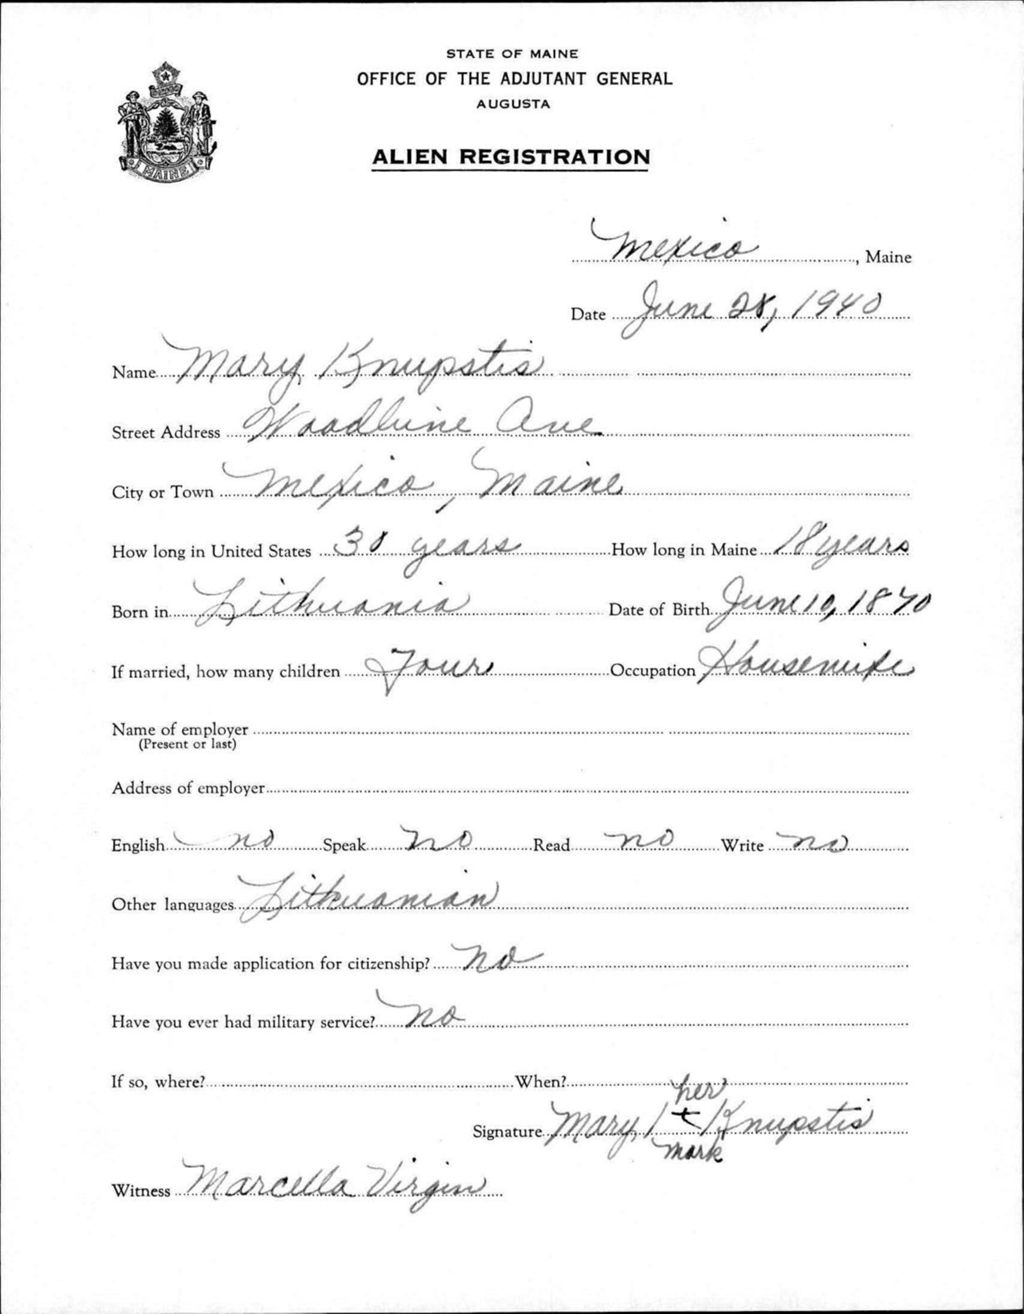 STATE OF MAINE
OFFICE OF THE ADJUTANT GENERAL
AUGUSTA
ALIEN REGISTRATION
MAINE
Mexico, Maine
Date June 28, 1940
Name Mary Knupstis
Street Address Woodbine Ave
City or Town Mexico, Maine
How long in United States 30 years How long in Maine 18 years
Born in Lithuania Date of Birth June 10, 1870
If married, how many children Four Occupation Housewife
Name of employer
(Present or last)
Address of employer
English no Speak no Read no Write no
Other languages Lithuanian
Have you made application for citizenship? no
Have you ever had military service? no
If so, where? When?
her
Signature Mary + Knupstis
mark
Witness Marcella Virgin